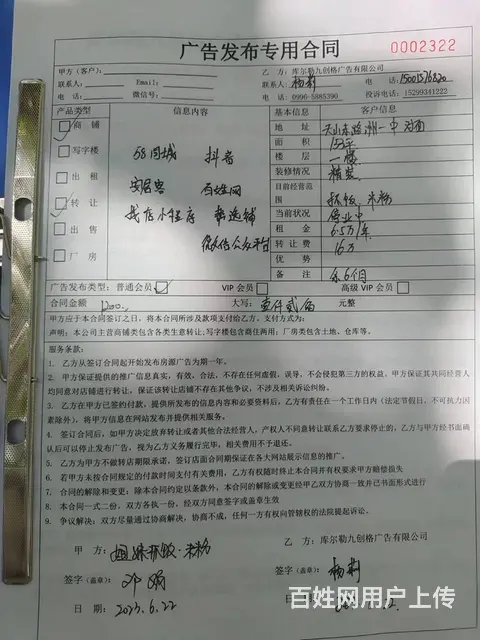 广告发布专用合同
0002322
甲方（客户）：
乙 方：库尔勒九创格广告有限公司
联系人： Email：
联系人：杨莉 电 话：
电 话： 微信号：
电 话：0996-5885390 投诉电话：15299341222
产品类型 信息内容 基本信息 客户信息
商 铺
写字楼
出 租
转 让
出 售
厂 房
58同城 抖音
安居客 百姓网
找店小程序
微信公众平台
地 址 对面
面 积
楼 层 一楼
装修情况 精装
目前经营范围 抓饭、米粉
当前状况
租 金 6.5万/年
转让费 16万
优 势
备 注 余6个月
广告发布类型：普通会员 VIP 会员 高级 VIP 会员
合同金额 大写：壹仟贰佰 元整
甲方应于本合同签订之日，将本合同所涉及款项支付给乙方。支付方式为：
声明：本公司主营商铺类包含各类生意转让；写字楼包含商住两用；厂房类包含土地、仓库等。
服务条款：
1、 乙方从签订合同起开始发布房源广告为期一年。
2、 甲方保证提供的推广信息真实，有效，合法，不存在任何虚假，误导，不会侵犯第三方的权益。甲方保证其共同经营人均同意对店铺进行转让，保证该转让店铺不存在其他争议，不涉及相关诉讼纠纷。
3、 乙方在甲方已签约付款，提供所发布的信息内容和必要资料后，乙方有责任在一个工作日内（法定节假日，不可抗力因素除外），将甲方信息在网站发布并提供相关服务。
4、 签订合同后，如甲方决定放弃转让或者其他合法经营人，产权人不同意转让联系乙方要求停止的，乙方与甲方经书面确认后可以停止发布广告，视为乙方义务履行完毕，相关费用不予退还。
5、 乙方为甲方不做转店期限承诺，签订店面合同期保证在各大网站展示信息的推广。
6、 若甲方未按合同规定的付款时间支付有关费用，乙方有权随时终止本合同并有权要求甲方赔偿损失
7、 合同的解除和变更：除本合同约定以条款外，本合同的解除或变更经甲乙双方协商一致并已书面形式进行
8、 本合同一式二份，双方各执一份，经双方同意签字或盖章生效
9、 争议解决：双方尽量通过协商解决，协商不成，任何一方有权向管辖权的法院提起诉讼。
甲 方：姐妹抓饭·米粉
乙 方：库尔勒九创格广告有限公司
签字（盖章）：
签字（盖章）：杨莉
日 期：2023.6.22
日 期：
百姓网用户上传